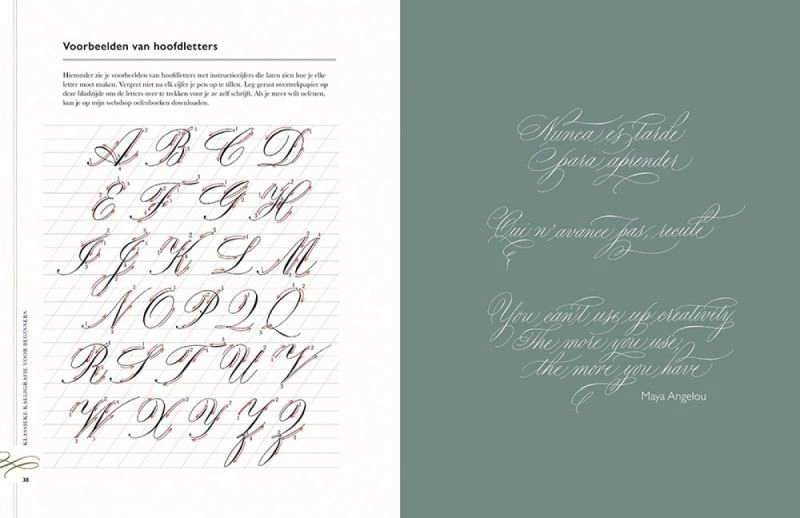 Voorbeelden van hoofdletters
Hieronder zie je voorbeelden van hoofdletters met instructiecijfers die laten zien hoe je elke
letter moet maken. Vergeet niet na elk cijfer je pen op te tillen. Leg gerust overtrekpapier op
deze bladzijde om de letters over te trekken voor je ze zelf schrijft. Als je meer wilt oefenen,
kun je op mijn webshop oefenboeken downloaden.
A B C D
E F G H
I J K L M
N O P Q Q
R S T U V
W X Y Z Z
KLASSIEKE KALLIGRAFIE VOOR BEGINNERS
38
Nunca es tarde
para aprender
Qui n'avance pas, recule
You can't use up creativity.
The more you use,
the more you have
Maya Angelou